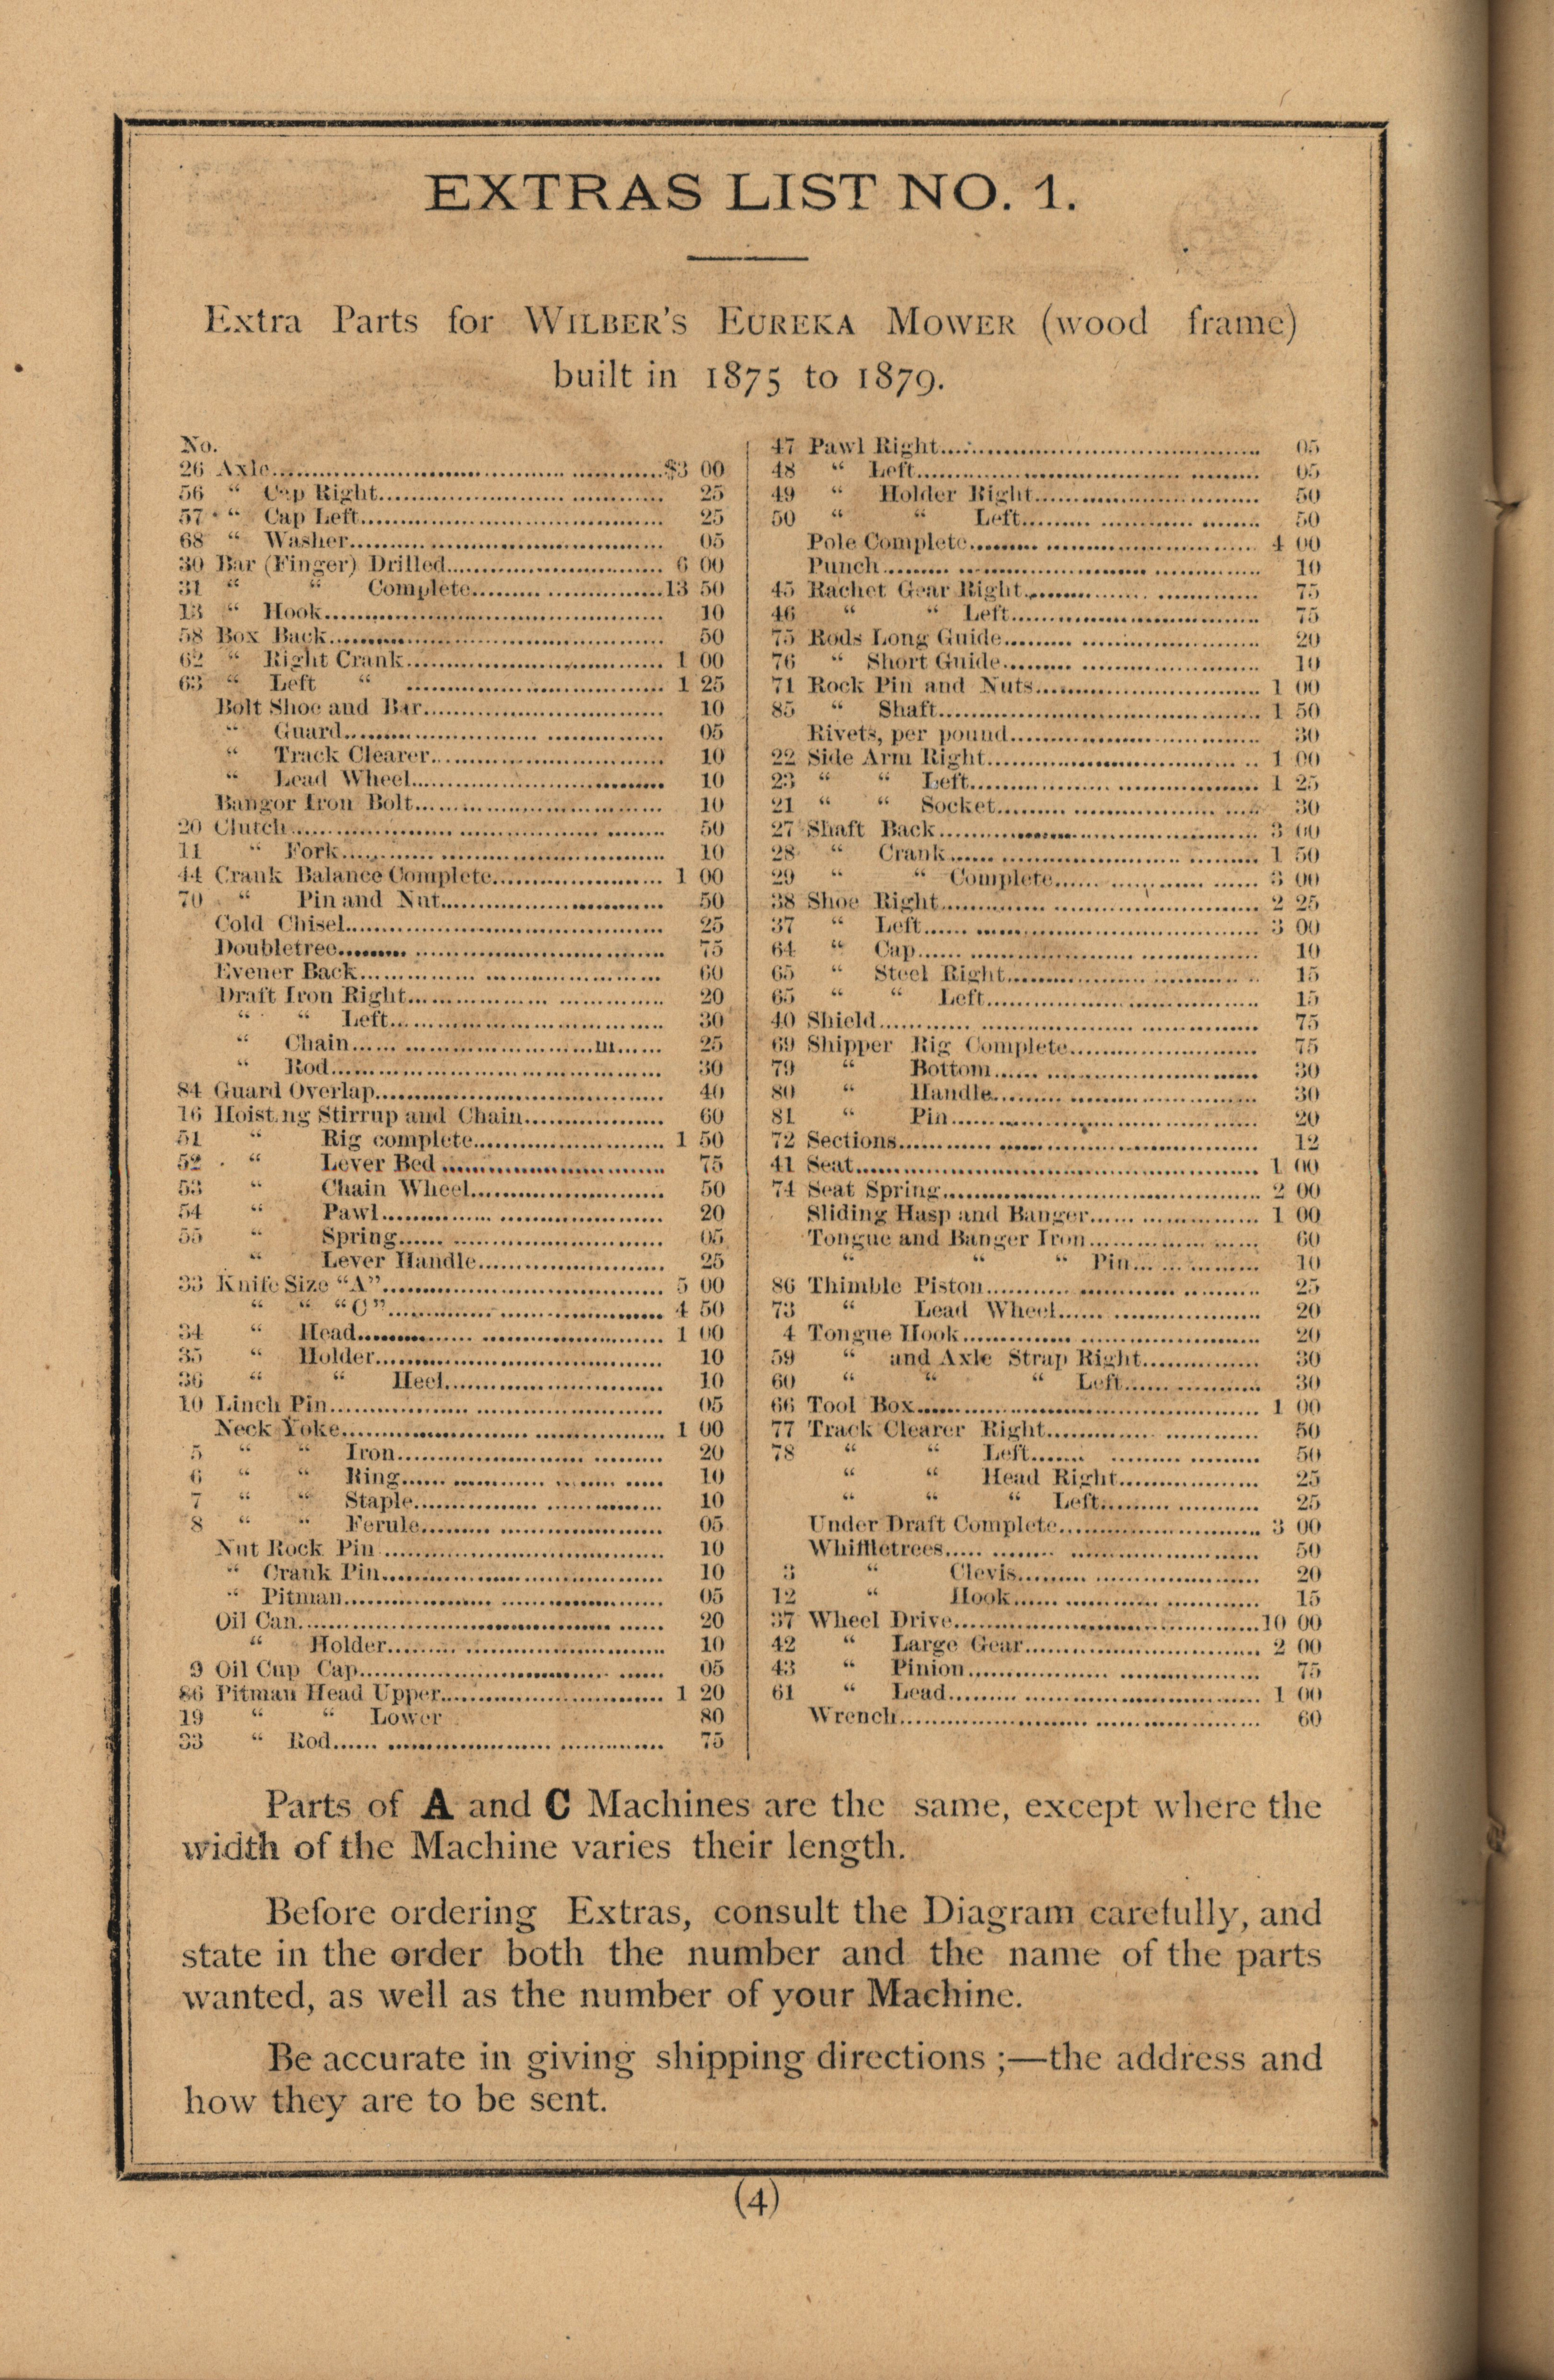 EXTRAS LIST NO. 1.
Extra Parts for WILBER'S EUREKA MOWER (wood frame)
built in 1875 to 1879.
No.
26 Axle........$3 00
56 “ Cap Right........ 25
57 “ Cap Left........ 25
68 “ Washer........ 05
30 Bar (Finger) Drilled........ 6 00
31 “ “ Complete........13 50
13 “ Hook........ 10
58 Box Back........ 50
62 “ Right Crank........ 1 00
63 “ Left “ ........ 1 25
Bolt Shoe and Bar........ 10
“ Guard........ 05
“ Track Clearer........ 10
“ Lead Wheel........ 10
Bangor Iron Bolt........ 10
20 Clutch........ 50
11 “ Fork........ 10
44 Crank Balance Complete........ 1 00
70 “ Pin and Nut........ 50
Cold Chisel........ 25
Doubletree........ 75
Evener Back........ 60
Draft Iron Right........ 20
“ “ Left........ 30
“ Chain........ 25
“ Rod........ 30
84 Guard Overlap........ 40
16 Hoisting Stirrup and Chain........ 60
51 “ Rig complete........ 1 50
52 “ Lever Bed ........ 75
53 “ Chain Wheel........ 50
54 “ Pawl........ 20
55 “ Spring........ 05
“ Lever Handle........ 25
33 Knife Size “A”........ 5 00
“ “ “C”........ 4 50
34 “ Head........ 1 00
35 “ Holder........ 10
36 “ “ Heel........ 10
10 Linch Pin........ 05
Neck Yoke........ 1 00
5 “ “ Iron........ 20
6 “ “ Ring........ 10
7 “ “ Staple........ 10
8 “ “ Ferule........ 05
Nut Rock Pin ........ 10
“ Crank Pin........ 10
“ Pitman........ 05
Oil Can........ 20
“ Holder........ 10
9 Oil Cup Cap........ 05
86 Pitman Head Upper........ 1 20
19 “ “ Lower 80
33 “ Rod........ 75
47 Pawl Right........ 05
48 “ Left........ 05
49 “ Holder Right........ 50
50 “ “ Left........ 50
Pole Complete........ 4 00
Punch........ 10
45 Rachet Gear Right........ 75
46 “ “ Left........ 75
75 Rods Long Guide........ 20
76 “ Short Guide........ 10
71 Rock Pin and Nuts........ 1 00
85 “ Shaft........ 1 50
Rivets, per pound........ 30
22 Side Arm Right........ 1 00
23 “ “ Left........ 1 25
21 “ “ Socket........ 30
27 Shaft Back........ 3 00
28 “ Crank........ 1 50
29 “ “ Complete........ 3 00
38 Shoe Right........ 2 25
37 “ Left........ 3 00
64 “ Cap........ 10
65 “ Steel Right........ 15
65 “ “ Left........ 15
40 Shield........ 75
69 Shipper Rig Complete........ 75
79 “ Bottom........ 30
80 “ Handle........ 30
81 “ Pin........ 20
72 Sections........ 12
41 Seat........ 1 00
74 Seat Spring........ 2 00
Sliding Hasp and Banger........ 1 00
Tongue and Banger Iron........ 60
“ “ “ Pin........ 10
86 Thimble Piston........ 25
73 “ Lead Wheel........ 20
4 Tongue Hook........ 20
59 “ and Axle Strap Right........ 30
60 “ “ “ Left........ 30
66 Tool Box........ 1 00
77 Track Clearer Right........ 50
78 “ “ Left........ 50
“ “ Head Right........ 25
“ “ “ Left........ 25
Under Draft Complete........ 3 00
Whiffletrees........ 50
3 “ Clevis........ 20
12 “ Hook........ 15
37 Wheel Drive........10 00
42 “ Large Gear........ 2 00
43 “ Pinion........ 75
61 “ Lead........ 1 00
Wrench........ 60
Parts of A and C Machines are the same, except where the
width of the Machine varies their length.
Before ordering Extras, consult the Diagram carefully, and
state in the order both the number and the name of the parts
wanted, as well as the number of your Machine.
Be accurate in giving shipping directions ;—the address and
how they are to be sent.
(4)